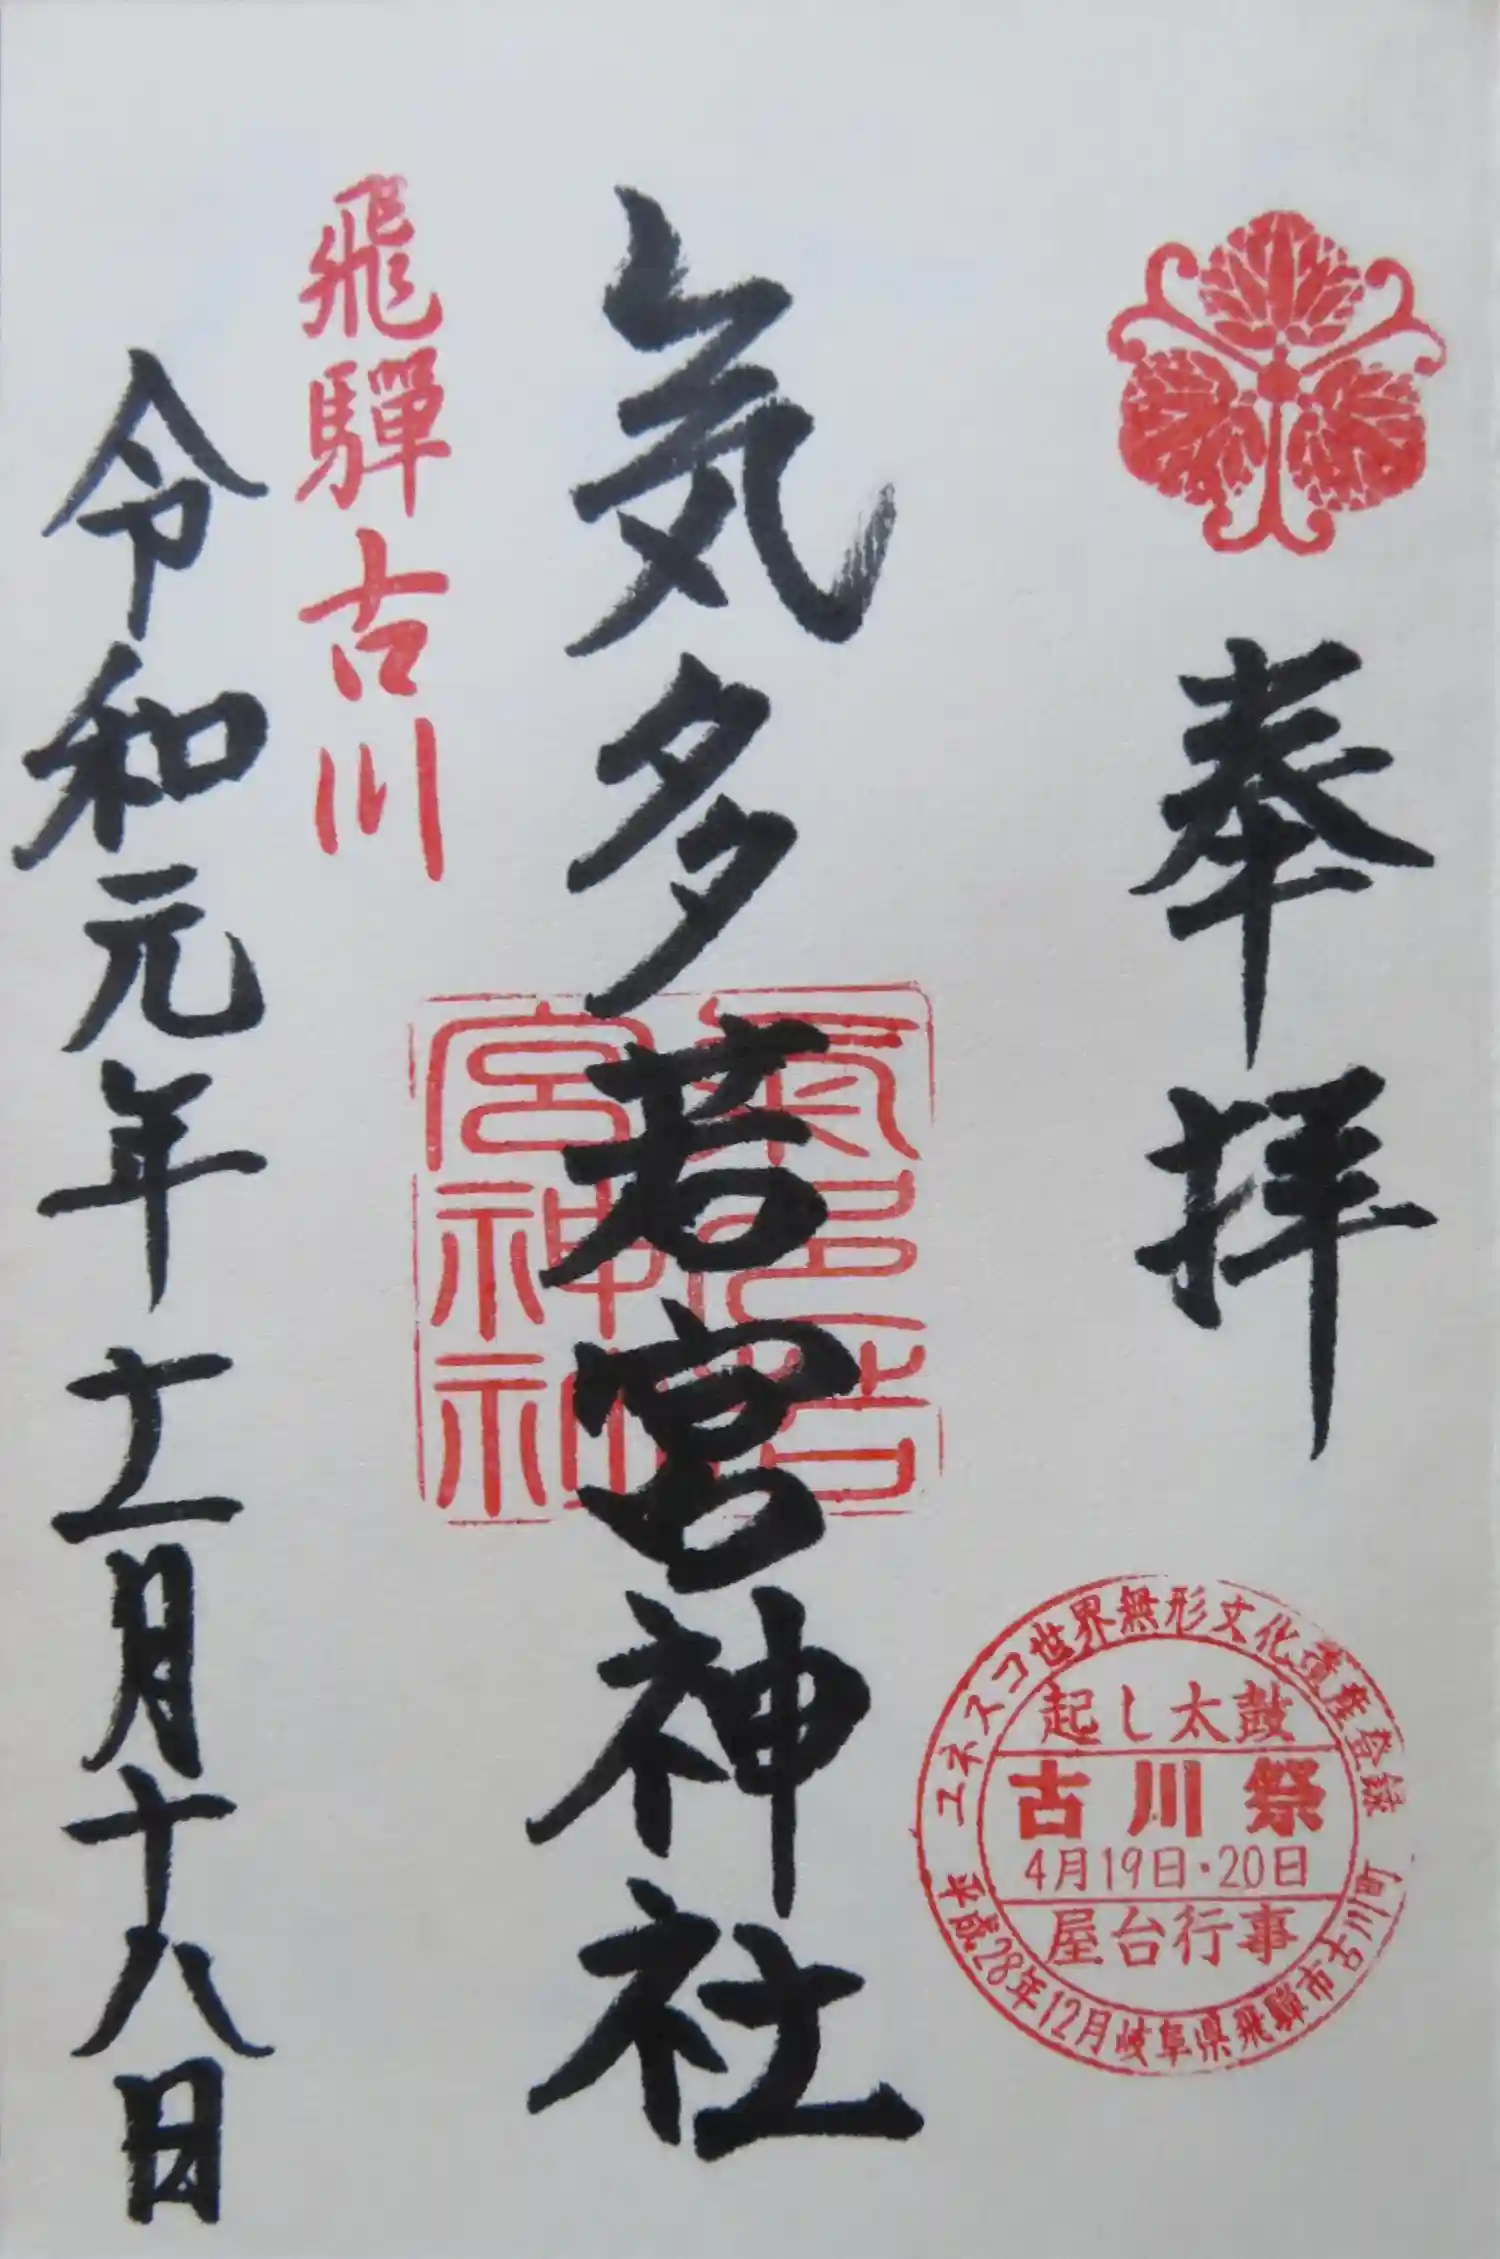 奉拝
ユネスコ世界無形文化遺産登録
起し太鼓
古川祭
4月19日・20日
屋台行事
平成28年12月岐阜県飛騨市古川町
気多若宮神社
氣多若
宮神社
飛驒古川
令和元年十一月十八日